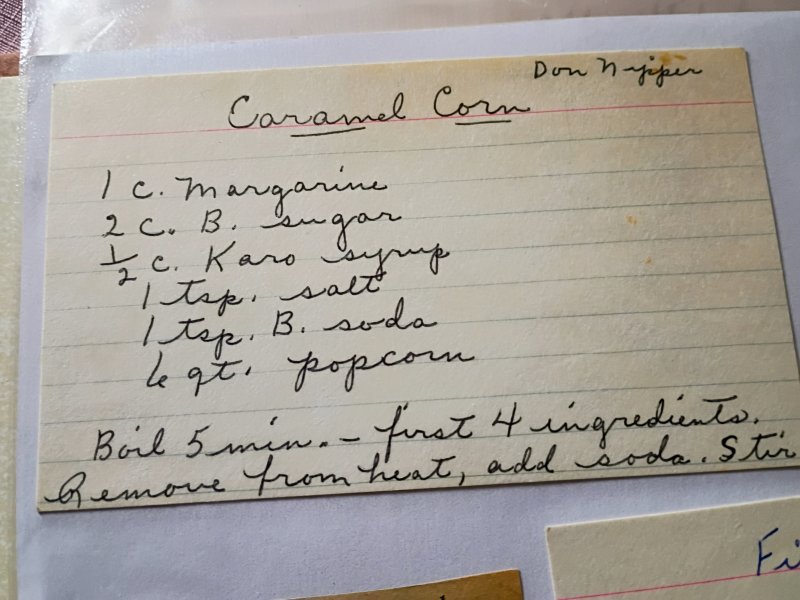 Don Nipper
Caramel Corn
1 c. Margarine
2 c. B. sugar
1/2 c. Karo syrup
1 tsp. salt
1 tsp. B. soda
6 qt. popcorn
Boil 5 min. - first 4 ingredients.
Remove from heat, add soda. Stir
Fi